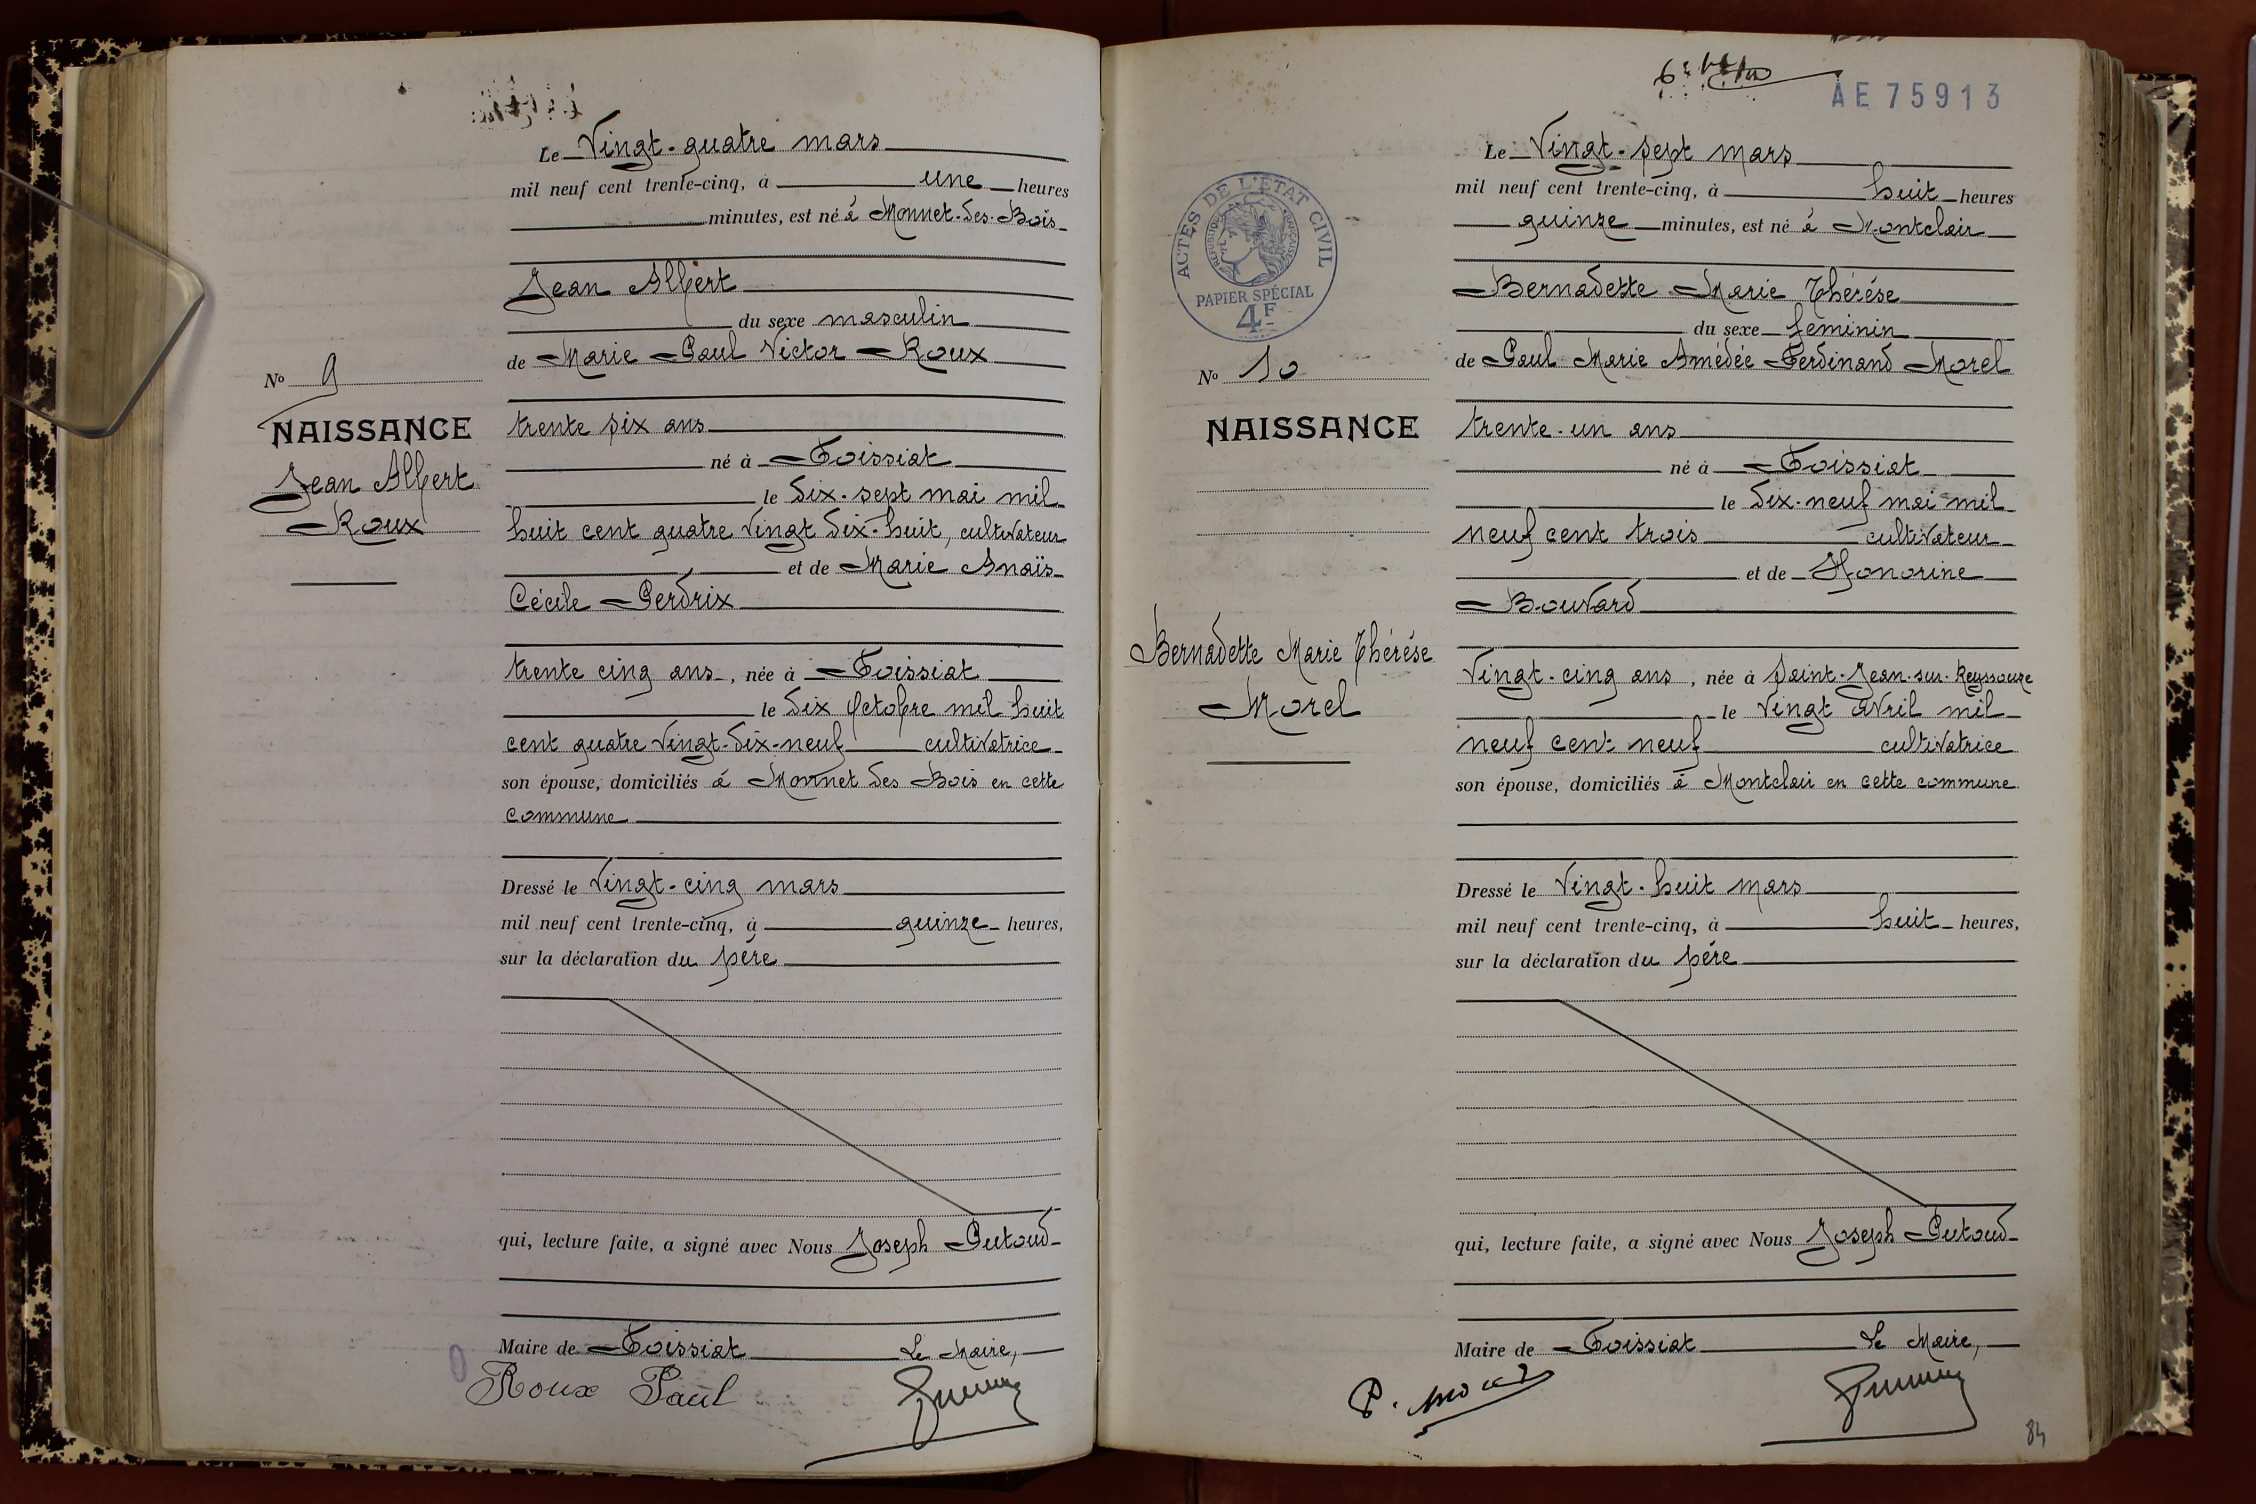 Le Vingt-quatre mars
mil neuf cent trente-cinq, à une heures
minutes, est né à Monnet-des-Bois
Jean Albert
du sexe masculin
de Marie Paul Victor Roux
trente six ans
né à Foissiat
le dix-sept mai mil
huit cent quatre vingt dix-huit, cultivateur
et de Marie Anaïs
Cécile Perdrix
trente cinq ans, née à Foissiat
le dix Octobre mil huit
cent quatre vingt-dix-neuf cultivatrice
son épouse, domiciliés à Monnet des Bois en cette
commune
Dressé le vingt-cinq mars
mil neuf cent trente-cinq, à quinze heures,
sur la déclaration du père
qui, lecture faite, a signé avec Nous Joseph Putoud
Maire de Foissiat Le Maire,
Roux Paul
No 9
NAISSANCE
Jean Albert
Roux
AE 75913
Le Vingt-sept mars
mil neuf cent trente-cinq, à huit heures
quinze minutes, est né à Montclair
Bernadette Marie Thérése
du sexe feminin
de Paul Marie Amédée Ferdinand Morel
trente-un ans
né à Foissiat
le dix-neuf mai mil
neuf cent trois cultivateur
et de Honorine
Bouvard
Vingt-cinq ans, née à Saint-Jean-sur-Reyssouze
le vingt avril mil
neuf cent neuf cultivatrice
son épouse, domiciliés à Montclair en cette commune
Dressé le vingt-huit mars
mil neuf cent trente-cinq, à huit heures,
sur la déclaration du pére
qui, lecture faite, a signé avec Nous Joseph Putoud
Maire de Foissiat Le Maire,
P. Morel
84
ACTES DE L'ETAT CIVIL
REPUBLIQUE FRANÇAISE
PAPIER SPÉCIAL
4F
No 10
NAISSANCE
Bernadette Marie Thérése
Morel